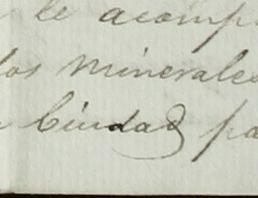 le acomp
los minerales
Ciudad pa